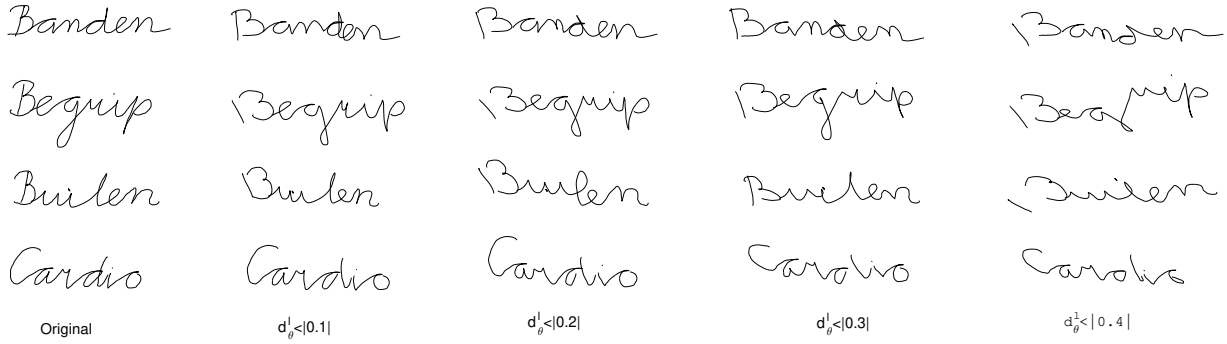 Banden Banden Banden Banden Banden
Begrip Begrip Begrip Begrip Begrip
Builen Builen Builen Builen Builen
Cardio Cardio Cardio Cardio Cardio
Original d^l_θ<|0.1| d^l_θ<|0.2| d^l_θ<|0.3| d^l_θ<|0.4|